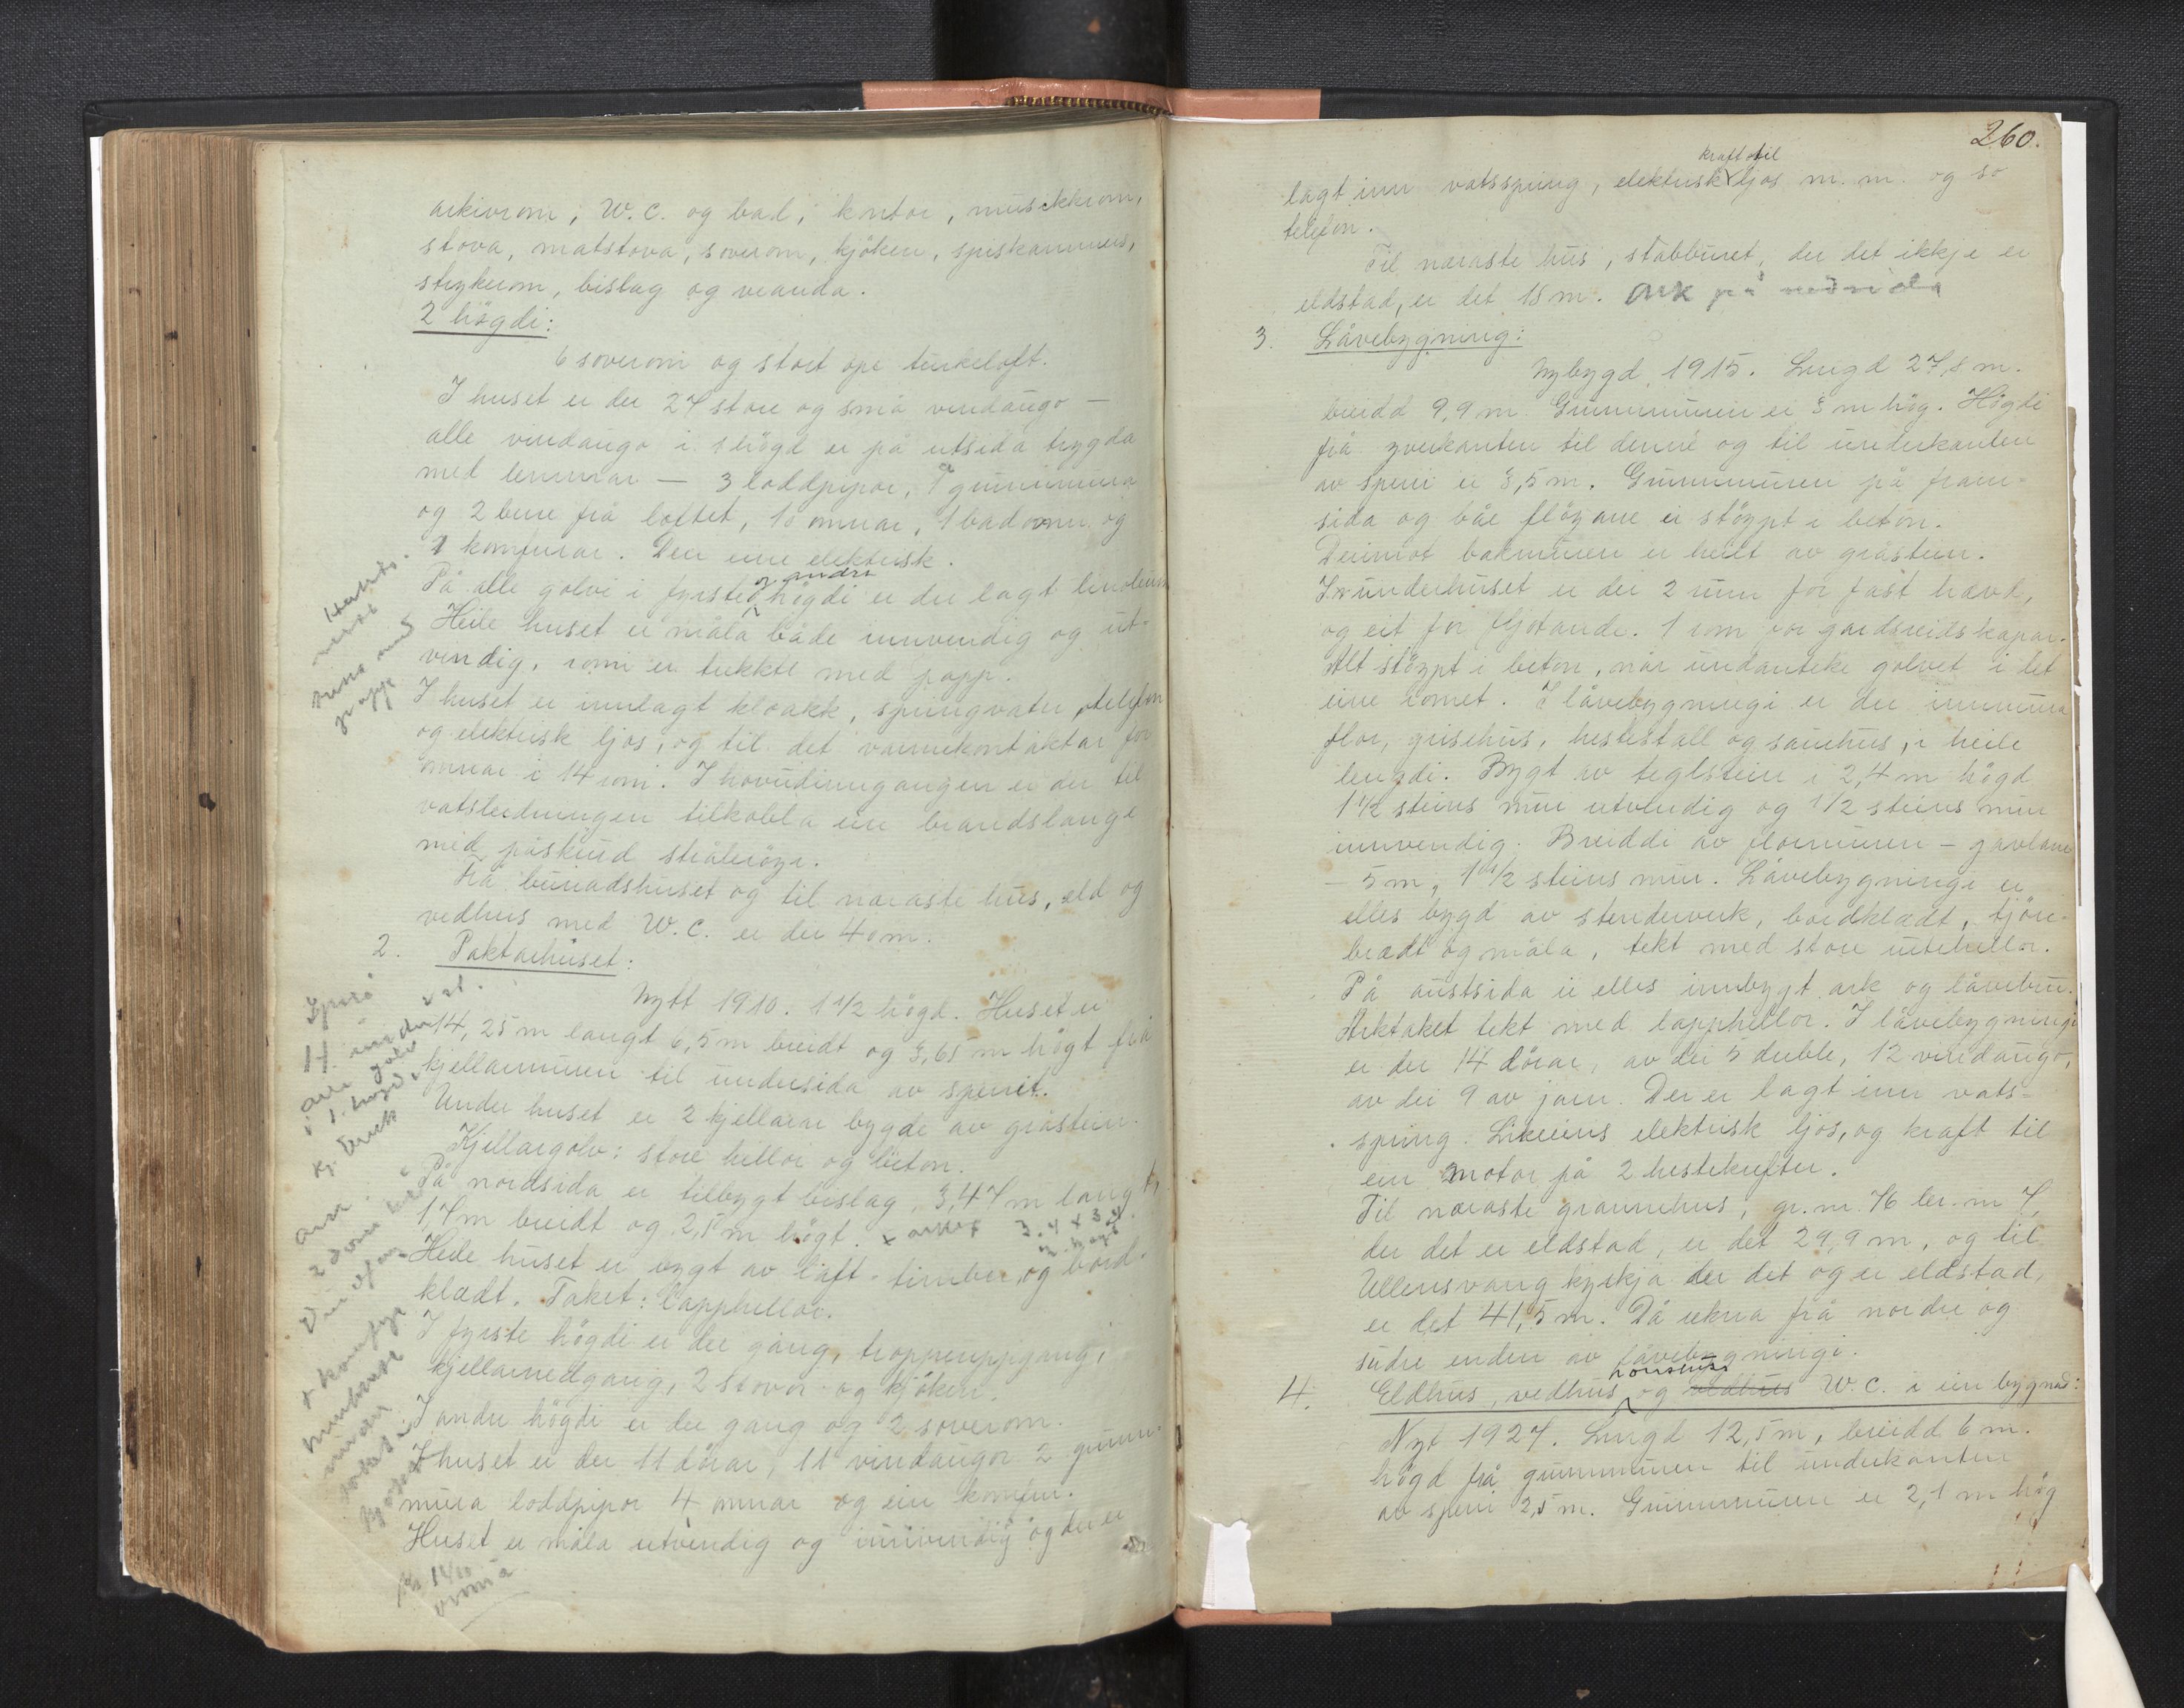 arkivrom, W.C. og bad, kontor, musikkrom,
stova, matstova, soverom, kjöken, spiskammers,
strykerom, bislag og veranda.
2 högdi:
6 soverom og stort ope turkeloft.
I huset er der 27 store og små vindaugo —
alle vindaugo i 1 högd er på utsida trygda
med lemmar — 3 loddpipor, 1 grunnmura
og 2 bere frå loftet, 10 omnar, 1 badomn og
2 komfurar. Den eine elektrisk.
På alle golvi i fyrste og andre högdi er der lagt linoleum
Heile huset er måla både innvendig og ut-
vendig, romi er tekkte med papp.
I huset er innlagt kloakk, springvatn, telefon
og elektrisk ljos, og til det varmekontaktar for
omnar i 14 rom. I hovudinngangen er der til
vatsleidningen tilkobla ein brandslange
med påskrud stråleröyr.
Frå bunadshuset og til næraste hus, eld og
vedhus med W.C. er der 40 m.
2. Paktarhuset:
Nytt 1910. 1 1/2 högd. Huset er
14,25 m langt 6,5 m breidt og 3,65 m högt frå
kjellarmuren til undersida av sperret.
Under huset er 2 kjellarar bygde av gråstein.
Kjellargolv: store hellor og beton.
På nordsida er tilbygt bislag, 3,47 m langt,
1,7 m breidt og 2,5 m högt. 3.4 x 3.4
Heile huset er bygt av laft-timber, og bord-
klædt. Taket: Lapphellor.
I fyrste högdi er der gang, troppeuppgang,
kjellarnedgang, 2 stovor og kjöken.
I andre högdi er der gang og 2 soverom.
I huset er der 11 dörar, 11 vindaugor 2 grunn-
mura loddpipor 4 omnar og ein komfur.
Huset er måla utvendig og innvendig og der er
260.
kraft til
lagt inn vatsspring, elektrisk ljos m.m. og so
telefon.
Til næraste hus, stabburet, der det ikkje er
eldstad, er det 18 m. Ark på nordsida
3. Låvebygning:
Nybygd 1915. Lengd 27,8 m.
breidd 9,9 m. Grunnmuren er 3 m hög. Högdi
frå yverkanten til denne og til underkanten
av sperri er 3,5 m. Grunnmuren på fram-
sida og båe flöyane er stöypt i beton.
Derimot bakmuren er heilt av gråstein.
I underhuset er der 2 rum for fast hævd,
og eit for fljotande. 1 rom for gardsreidskapar.
Alt stöypt i beton, når undanteke golvet i det
eine romet. I låvebygningi er der innmura
flor, grisehus, hestestall og sauehus, i heile
lengdi. Bygt av teglstein i 2,4 m högd
1 1/2 steins mur utvendig og 1/2 steins mur
innvendig. Breiddi av flormuren — gavlane
— 5 m, 1 1/2 steins mur. Låvebygningi er
elles bygd av stenderverk, bordklædt, tjöre-
brædt og måla, tekt med store utehellor.
På austsida er elles innbygt ark og låvebru.
Arktaket tekt med lapphellor. I låvebygningi
er der 14 dörar, av dei 5 duble, 12 vindaugo,
av dei 9 av jarn. Der er lagt inn vats-
spring. Likeeins elektrisk ljos, og kraft til
ein motor på 2 hestekrefter.
Til næraste grannehus, gr.nr. 76 br.nr 7,
der det er eldstad, er det 29,9 m, og til
Ullensvang kyrkja der det og er eldstad,
er det 41,5 m. Då rekna frå nordre og
sudre enden av låvebygningi.
hönsehus
4. Eldhus, vedhus og vedhus W.C. i ein bygnad:
Nyt 1927. Lengd 12,5 m, breidd 6 m.
högd frå grunnmuren til underkanten
av sperri 2,5 m. Grunnmuren er 2,1 m hög